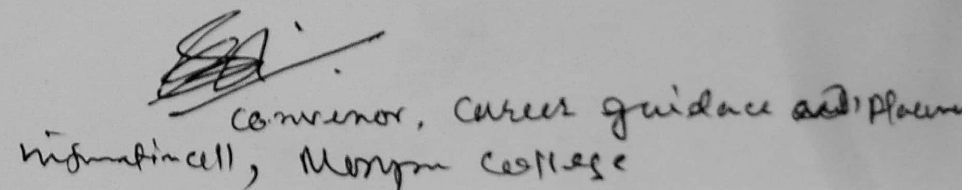 Convenor, Career guidance and placem
information cell, College